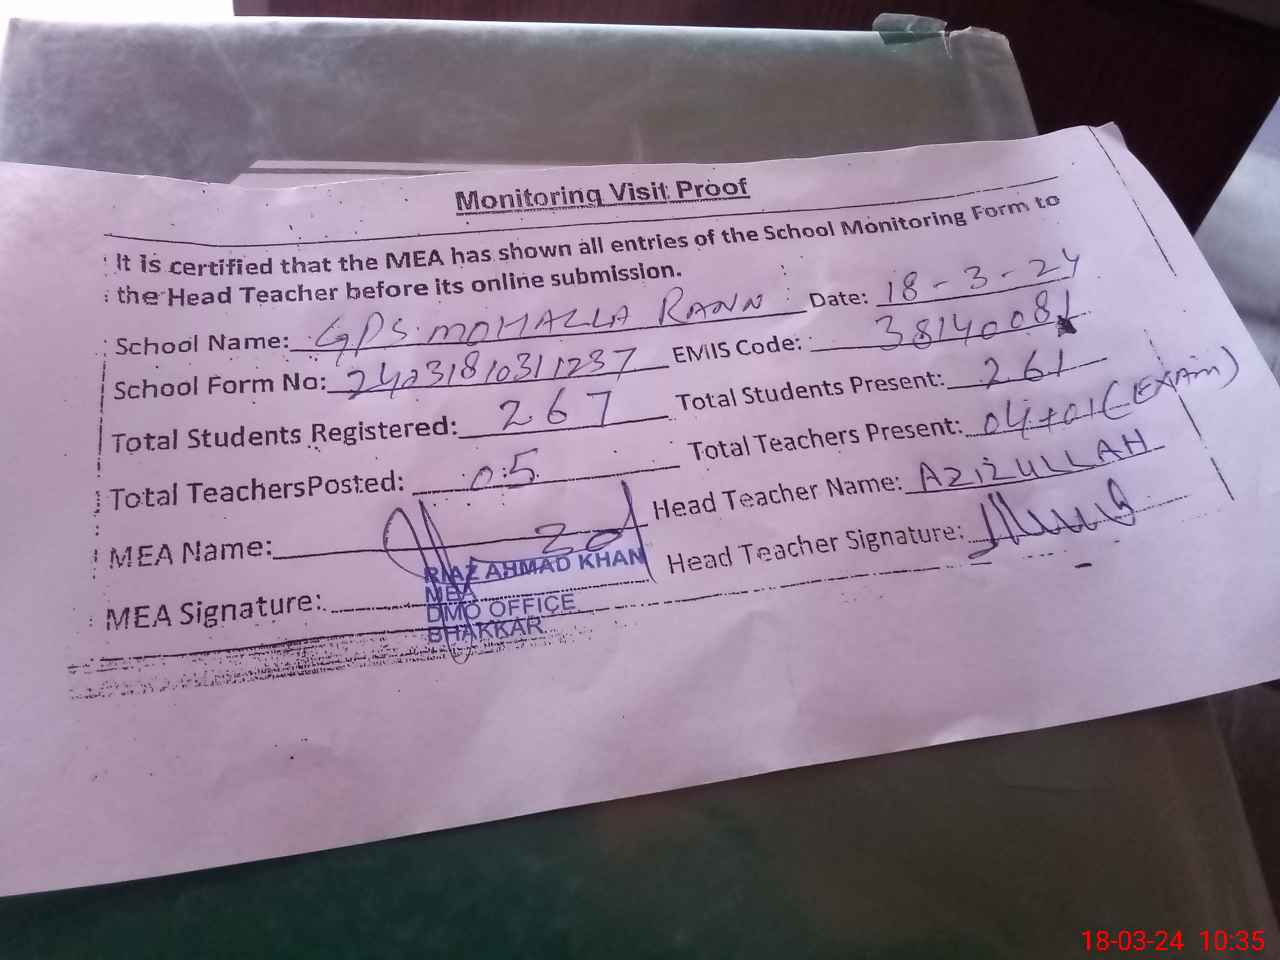 Monitoring Visit Proof
It is certified that the MEA has shown all entries of the School Monitoring Form to
the Head Teacher before its online submission.
School Name: GPS MOHALLA RANN Date: 18-3-24
School Form No: 24231810311237 EMIS Code: 38140081
Total Students Registered: 267 Total Students Present: 261
Total TeachersPosted: 05 Total Teachers Present: 04+01 (EXAM)
MEA Name: Head Teacher Name: AZIZULLAH
MEA Signature: Head Teacher Signature:
RIAZ AHMAD KHAN
MEA
DMO OFFICE
BHAKKAR
18-03-24 10:35